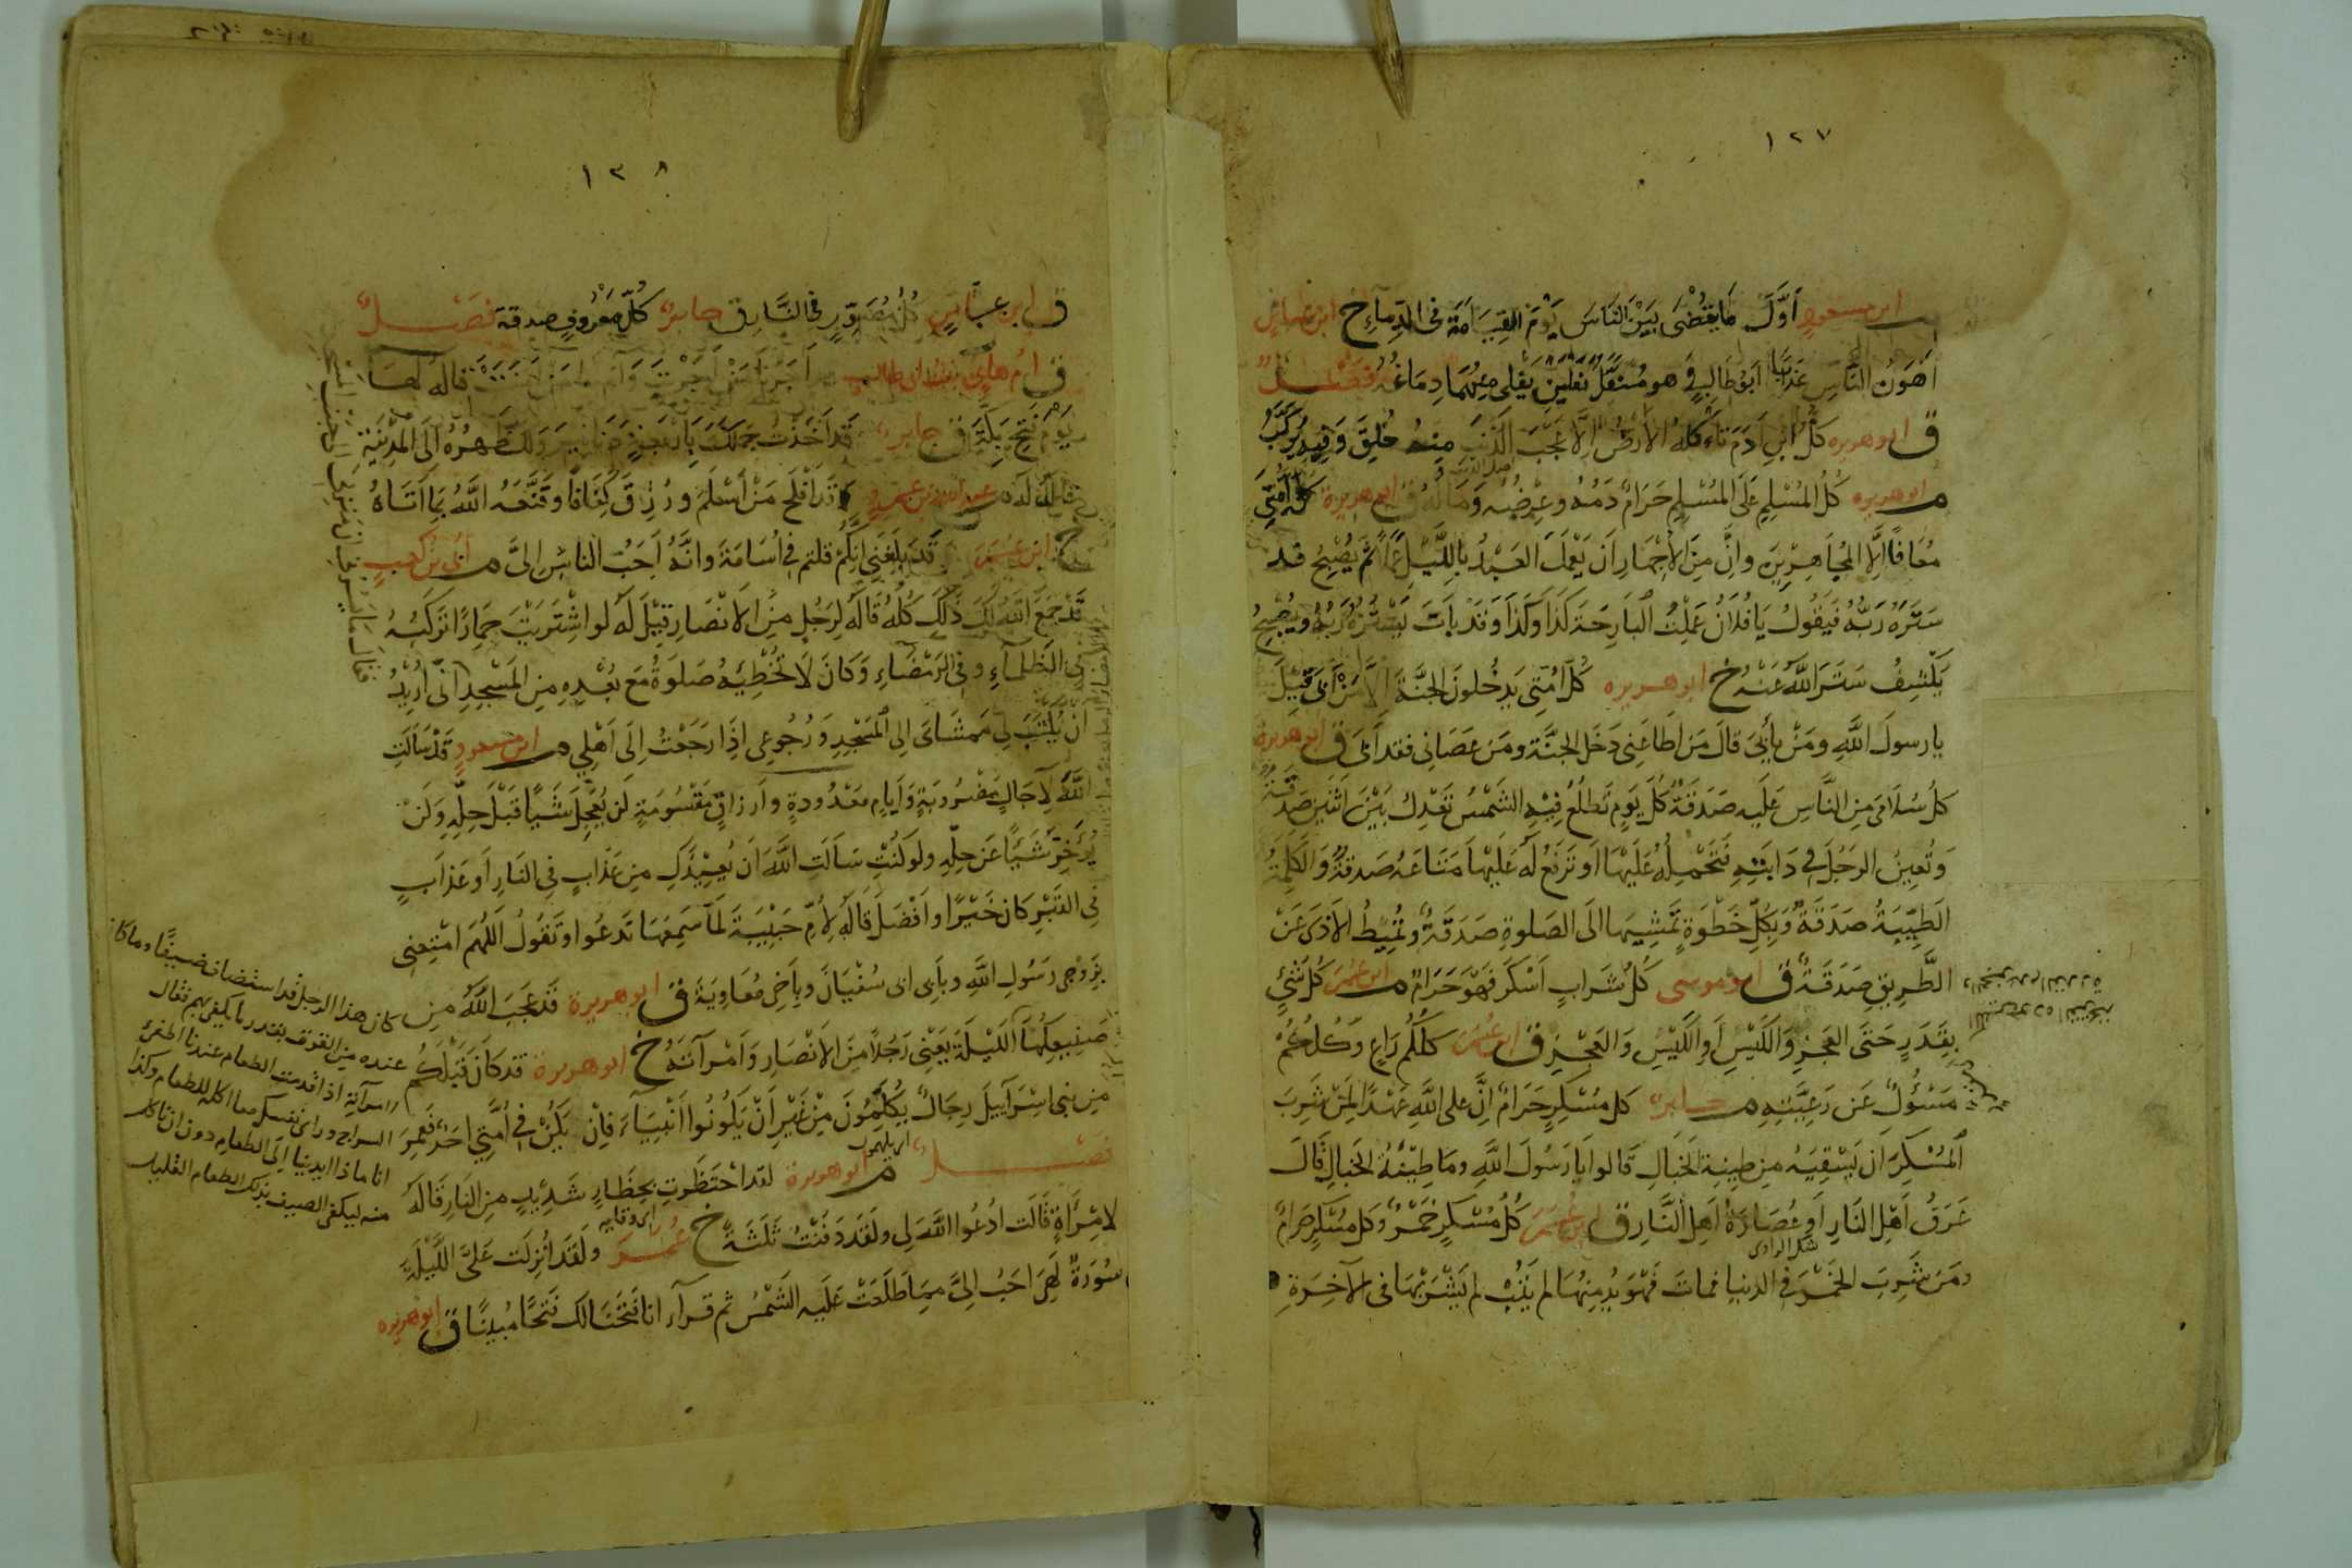 ١٢٧
ابن مسعود اَوَّلُ مَا يُقْضٰى بَيْنَ النَّاسِ يَوْمَ القِيَامَةِ فى الدِّمَاءِ خ ابن عباس
اَهْوَنُ النَّاسِ عَذَابًا اَبُو طَالِبٍ وَهو مُنْتَعِلٌ نَعْلَيْنِ يَغْلى مِنْهُمَا دِمَاغُهُ فَصْلٌ
ق ابو هريره كلُّ ابْنِ اٰدَمَ تَأْكُلُهُ الاَرْضُ اِلَّا عَجْبَ الذَّنَبِ مِنْهُ خُلِقَ وَفِيهِ يُرَكَّبُ
م ابو هريره كُلُّ المُسْلِمِ عَلَى المُسْلِمِ حَرَامٌ دَمُهُ وعِرْضُهُ وَمَالُهُ ق ابو هريرة كلُّ اُمَّتِى
مُعَافًا اِلَّا المُجَاهِرِيْنَ واِنَّ مِنَ الاِجْهَارِ اَنْ يَعْمَلَ العَبْدُ بِاللَّيْلِ عَمَلًا ثُمَّ يُصْبِحُ قد
سَتَرَهُ رَبُّهُ فَيَقُولُ يَا فُلَانُ عَمِلْتُ البَارِحَةَ كَذَا وَكَذَا وَقَدْ بَاتَ يَسْتُرُهُ رَبُّهُ ويُصْبِحُ
يَكْشِفُ سَتْرَ اللّٰهِ عَنْهُ خ ابو هريره كُلُّ اُمَّتِى يَدْخُلونَ الجَنَّةَ اِلَّا مَنْ اَبٰى قِيْلَ
يا رسولَ اللّٰهِ ومَنْ يَأْبٰى قالَ مَنْ اَطَاعَنِى دَخَلَ الجَنَّة ومَن عَصَانِى فقد اَبٰى ق ابو هريرة
كلُّ سُلَامٰى مِنَ النَّاسِ عَلَيه صَدَقَةٌ كُلَّ يَوْمٍ تَطْلُعُ فِيْهِ الشَّمْسُ تَعْدِلُ بَيْنَ اثْنَينِ صَدَقَةٌ
وَتُعِينُ الرَجُلَ فى دَابَّتِهِ فَتَحْمِلُهُ عَلَيْهَا اَو تَرْفَعُ لَهُ عَلَيْهَا مَتَاعَهُ صَدقةٌ وَالكَلِمَةُ
الطَّيِّبَةُ صَدَقَةٌ وَبِكُلِّ خَطْوَةٍ تَمْشِيهَا الَى الصَلوةِ صَدَقَةٌ وتُمِيْطُ الاَذٰى عَنْ
الطَّرِيقِ صَدَقَةٌ ق ابو موسى كُلُّ شَرَابٍ اَسْكَرَ فَهُوَ حَرَامٌ م ابن عمر كُلُّ شَئٍ
بِقَدَرٍ حَتّٰى العَجْزِ وَالكَيْسِ اَوِ الكَيْسِ وَالعَجْزِ ق ابن عمر كُلُّكُم رَاعٍ وَكُلُّكُمْ
مَسْؤُلٌ عَن رَعِيَّتِهِ م جابر كلُّ مُسْكِرٍ حَرَامٌ اِنَّ على اللّٰهِ عَهْدًا لِمَنْ شَرِبَ
المُسْكِرَ اَن يَسْقِيَهُ مِن طِينَةِ الخَبَالِ قَالوا يَا رَسُولَ اللّٰهِ ومَا طِيْنَةُ الخبالِ قَالَ
عَرَقُ اَهْلِ النَارِ اَوعُصَارَةُ اَهلِ النَّارِ ق ابن عمر كُلُّ مُسْكِرٍ خَمْرٌ وَكل مُسْكِرٍ حَرامٌ
شك الراوى
ومَن شَرِبَ الخَمْرَ فى الدنيا فمات فَهُوَ يُدمِنُهَا لم يَتُبْ لم يَشْرَبْهَا فى الآخِرَةِ
١٣٨
ق ابن عباس كُلُّ مُصَوِّرٍ فى النَّارِ ق جابر كُلُّ مَعْرُوفٍ صدقة فَصْلٌ
ق ام هانئ بنت ابى طالب قَدْ اَجَرْنَا مَنْ اَجَرْتِ وَاَمَّنَّا مَنْ اَمَّنْتِ قاله لهَا
يَوْمَ فَتْحِ مَكَّةَ ق جابر قَد اَخَذْتُ جَمَلَكَ بِاَرْبَعَةِ دَنَانِيرَ وَلَكَ ظَهْرُهُ الَى المَدِيْنَةِ
قاله لَهُ م عبد الله بن عمرو قَدْ اَفْلَحَ مَنْ اَسْلَمَ ورُزِقَ كَفَافًا وقَنَّعَهُ اللّٰهُ بِمَا اَتَاهُ
خ ابن عمر قَدْ بَلَغَنِى اَنَّكُمْ قلتم فى اُسَامَةَ وَانَّهُ اَحَبُّ النَّاسِ اِلىَّ م اُبى بن كعب
قَدْ جَمَعَ اللّٰهُ لَكَ ذٰلِكَ كُلَّهُ قَالَهُ لِرَجُلٍ مِنَ الاَنْصَارِ قِيْلَ لَهُ لو اشْتَرَيْتَ حِمَارًا تَركَبُهُ
فى الظَلْمَاءِ وفى الرَمْضَاءِ وَكَانَ لَا تُخْطِيْهُ صَلوَةٌ مَعَ بُعْدِهِ مِنَ المَسْجِدِ اِنّى اُرِيْدُ
اَنْ يُكْتَبَ لِى مَمْشَاىَ اِلى المَسْجِدِ وَرُجُوعِى اِذَا رَجَعْتُ اِلَى اَهْلِى م ابن مسعود قَدْ سَأَلتِ
اللّٰهَ لِآجَالٍ مَضْرُوبَةٍ وَاَيَامٍ مَعْدُودةٍ واَرزاقٍ مَقْسُومَةٍ لَن يُعَجِّلَ شَيْئًا قَبْلَ حِلِّهِ وَلَنْ
يُؤَخِّرَ شَيْئًا عَن حِلِّهِ ولو كُنْتِ سَاَلْتِ اللّٰهَ اَن يُعِيْذَكِ مِن عَذَابٍ فِى النَارِ اَو عَذَابٍ
فِى القَبْرِ كان خَيْرًا او اَفْضَلَ قَالَهُ لِاُمّ حَبْيبَةَ لَمَّا سَمِعَهَا تَدعُوا وتَقُولُ اَللّٰهُمَ امْتِعْنِى
بِزَوْجِى رَسُولِ اللّٰهِ وبِاَبِى ابى سُفْيَانَ وبِاَخِى مُعَاوِيَةَ ق ابو هريرة قَد عَجِبَ اللّٰهُ مِن
صَنِيعِكُمَا اللَّيْلَةَ يَعْنِى رَجُلًا مِنَ الاَنْصَارِ وَامْرَأَتَهُ خ ابو هريرة قد كَانَ قَبْلَكُم
مِن بَنِى اسْرَآئِيلَ رِجَالٌ يُكَلَّمُونَ مِنْ غَيْرِ اَنْ يَكُونُوا اَنْبِيَآءَ فَاِنْ يَكُنْ فِى اُمَّتِى اَحَدٌ فَعُمَرَ
فَصْلٌ م ابو هريرة لقد احْتَظَرتِ بِحِظَارٍ شَدِيْدٍ مِنَ النَارِ قَالَهُ
لِامْرَأَةٍ قَالَت ادْعُوا اللّٰهَ لِى ولَقَد دَفَنْتُ ثَلَثَةً خ عمر ولَقَد اُنْزِلَت عَلىَّ اللَّيْلَةَ
سُورَةٌ لَهِىَ اَحَبُّ اِلىَّ مِمَّا طَلَعَتْ عَلَيهِ الشَّمْسُ ثم قرأ انا فَتَحْنَا لك فَتحًا مُبِينًا ق ابو هريره
كان هذا الرجل قد استضاف ضيفًا وما كان
عنده من القوت بقدر ما يكفى بهم فقال
لامرأته اذا قدمت الطعام عندنا اطفئ
السراج